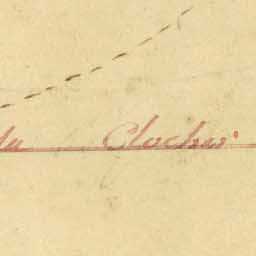 du Clocher